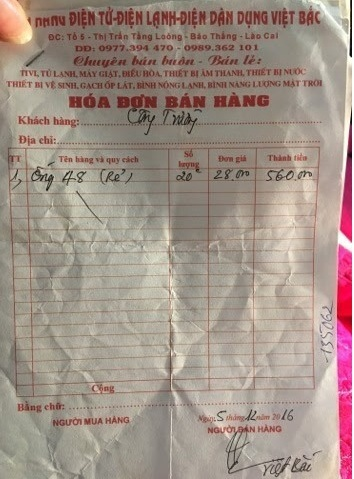 ĐIỆN TỬ-ĐIỆN LẠNH-ĐIỆN DÂN DỤNG VIỆT BẮC
ĐC: Tổ 5 - Thị Trấn Tằng Loỏng - Bảo Thắng - Lào Cai
DĐ: 0977.394 470 - 0989.362 101
Chuyên bán buôn - Bán lẻ:
TIVI, TỦ LẠNH, MÁY GIẶT, ĐIỀU HÒA, THIẾT BỊ ÂM THANH, THIẾT BỊ NƯỚC
THIẾT BỊ VỆ SINH, GẠCH ỐP LÁT, BÌNH NÓNG LẠNH, BÌNH NĂNG LƯỢNG MẶT TRỜI
HÓA ĐƠN BÁN HÀNG
Khách hàng:
Địa chỉ:
TT Tên hàng và quy cách Số lượng Đơn giá Thành tiền
1, Ống 48 (Rẻ) 20 28.000 560.000
135062
Cộng
Bằng chữ:
Ngày 5 tháng 12 năm 2016
NGƯỜI MUA HÀNG NGƯỜI BÁN HÀNG
Việt Bắc